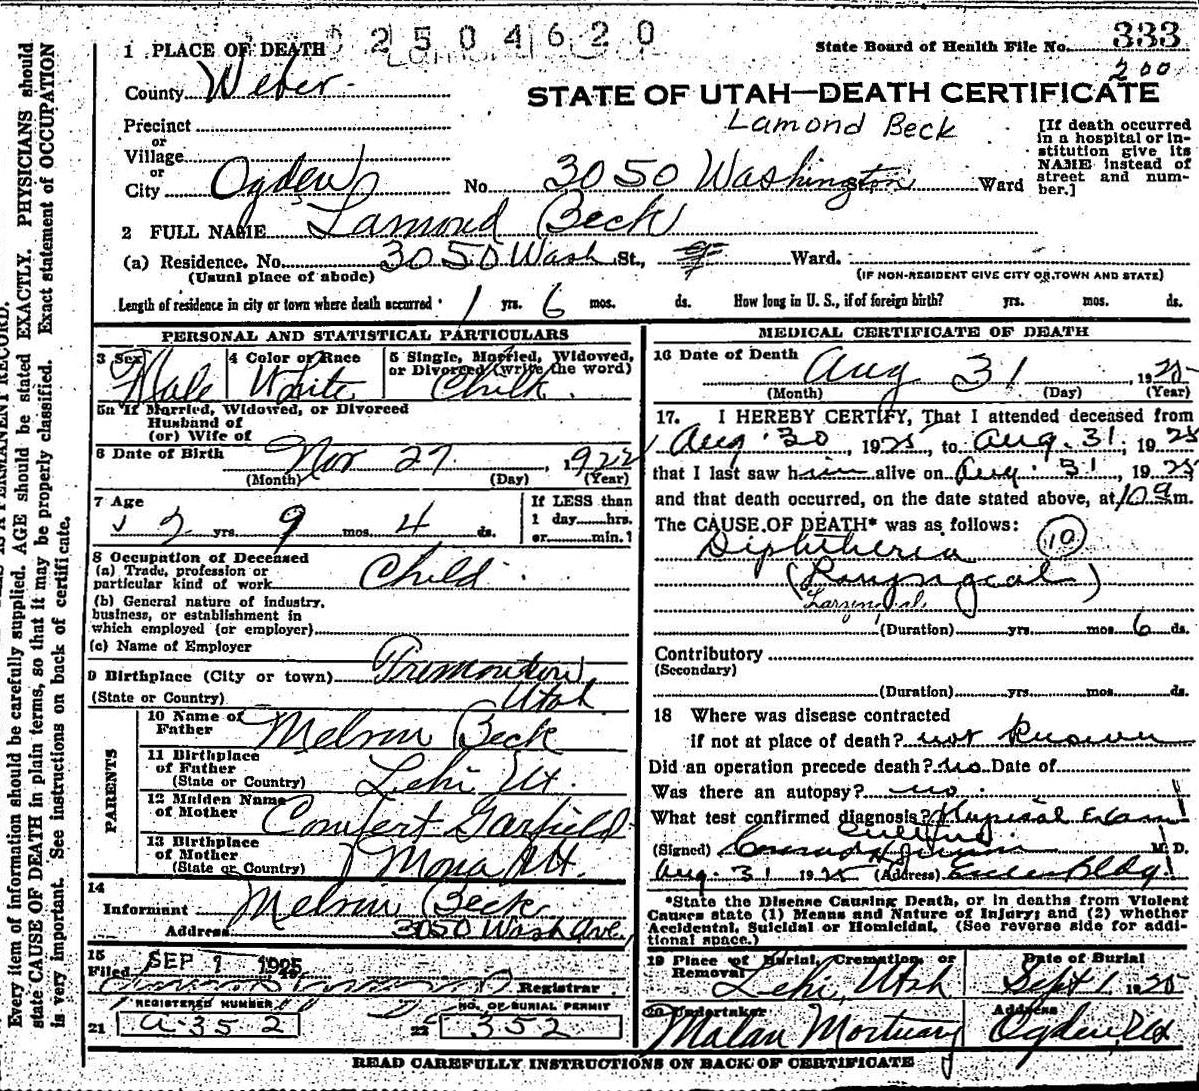 02504620
1 PLACE OF DEATH
State Board of Health File No. 333
200
County Weber
STATE OF UTAH—DEATH CERTIFICATE
Lamond Beck
Precinct
or
Village
or
City Ogden No. 3050 Washington St. Ward
[If death occurred
in a hospital or in-
stitution give its
NAME instead of
street and num-
ber.]
2 FULL NAME Lamond Beck
(a) Residence. No. 3050 Wash St., Ward.
(Usual place of abode) (IF NON-RESIDENT GIVE CITY OR TOWN AND STATE)
Length of residence in city or town where death occurred 1 yrs. 6 mos. ds. How long in U. S., if of foreign birth? yrs. mos. ds.
PERSONAL AND STATISTICAL PARTICULARS
3 Sex Male
4 Color or Race White
5 Single, Married, Widowed,
or Divorced (write the word)
Child
5a If Married, Widowed, or Divorced
Husband of
(or) Wife of
6 Date of Birth Nov 27, 1922
(Month) (Day) (Year)
7 Age
2 yrs. 9 mos. 4 ds.
If LESS than
1 day......hrs.
or......min.?
8 Occupation of Deceased
(a) Trade, profession or
particular kind of work Child
(b) General nature of industry,
business, or establishment in
which employed (or employer)
(c) Name of Employer
9 Birthplace (City or town) Tremonton
(State or Country) Utah
PARENTS
10 Name of
Father Melvin Beck
11 Birthplace
of Father
(State or Country) Lehi Ut.
12 Maiden Name
of Mother Comfert Garfield
13 Birthplace
of Mother
(State or Country) Mona Ut.
14
Informant Melvin Beck
Address 3050 Wash Ave.
15
Filed SEP 1 1925
Registrar
REGISTERED NUMBER
21 a-352
NO. OF BURIAL PERMIT
22 352
MEDICAL CERTIFICATE OF DEATH
16 Date of Death Aug 31, 1925
(Month) (Day) (Year)
17. I HEREBY CERTIFY, That I attended deceased from
Aug. 30, 1925, to Aug. 31, 1925
that I last saw him alive on Aug. 31, 1925,
and that death occurred, on the date stated above, at 10 a m.
The CAUSE OF DEATH* was as follows:
Diphtheria 10
(Laryngeal)
Laryngeal
(Duration) yrs. mos. 6 ds.
Contributory
(Secondary)
(Duration) yrs. mos. ds.
18 Where was disease contracted
if not at place of death? not known
Did an operation precede death? no Date of
Was there an autopsy? no.
What test confirmed diagnosis? Physical Exam
Culture
(Signed) M. D.
Aug. 31 1925 (Address) Eccles Bldg.
*State the Disease Causing Death, or in deaths from Violent
Causes state (1) Means and Nature of Injury; and (2) whether
Accidental, Suicidal or Homicidal. (See reverse side for addi-
tional space.)
19 Place of Burial, Cremation, or
Removal Lehi, Utah
Date of Burial
Sept 1 1925
20 Undertaker
Malan Mortuary
Address
Ogden, Ut
READ CAREFULLY INSTRUCTIONS ON BACK OF CERTIFICATE
IS A PERMANENT RECORD.
Every item of information should be carefully supplied. AGE should be stated EXACTLY. PHYSICIANS should
state CAUSE OF DEATH in plain terms, so that it may be properly classified. Exact statement of OCCUPATION
is very important. See instructions on back of certificate.